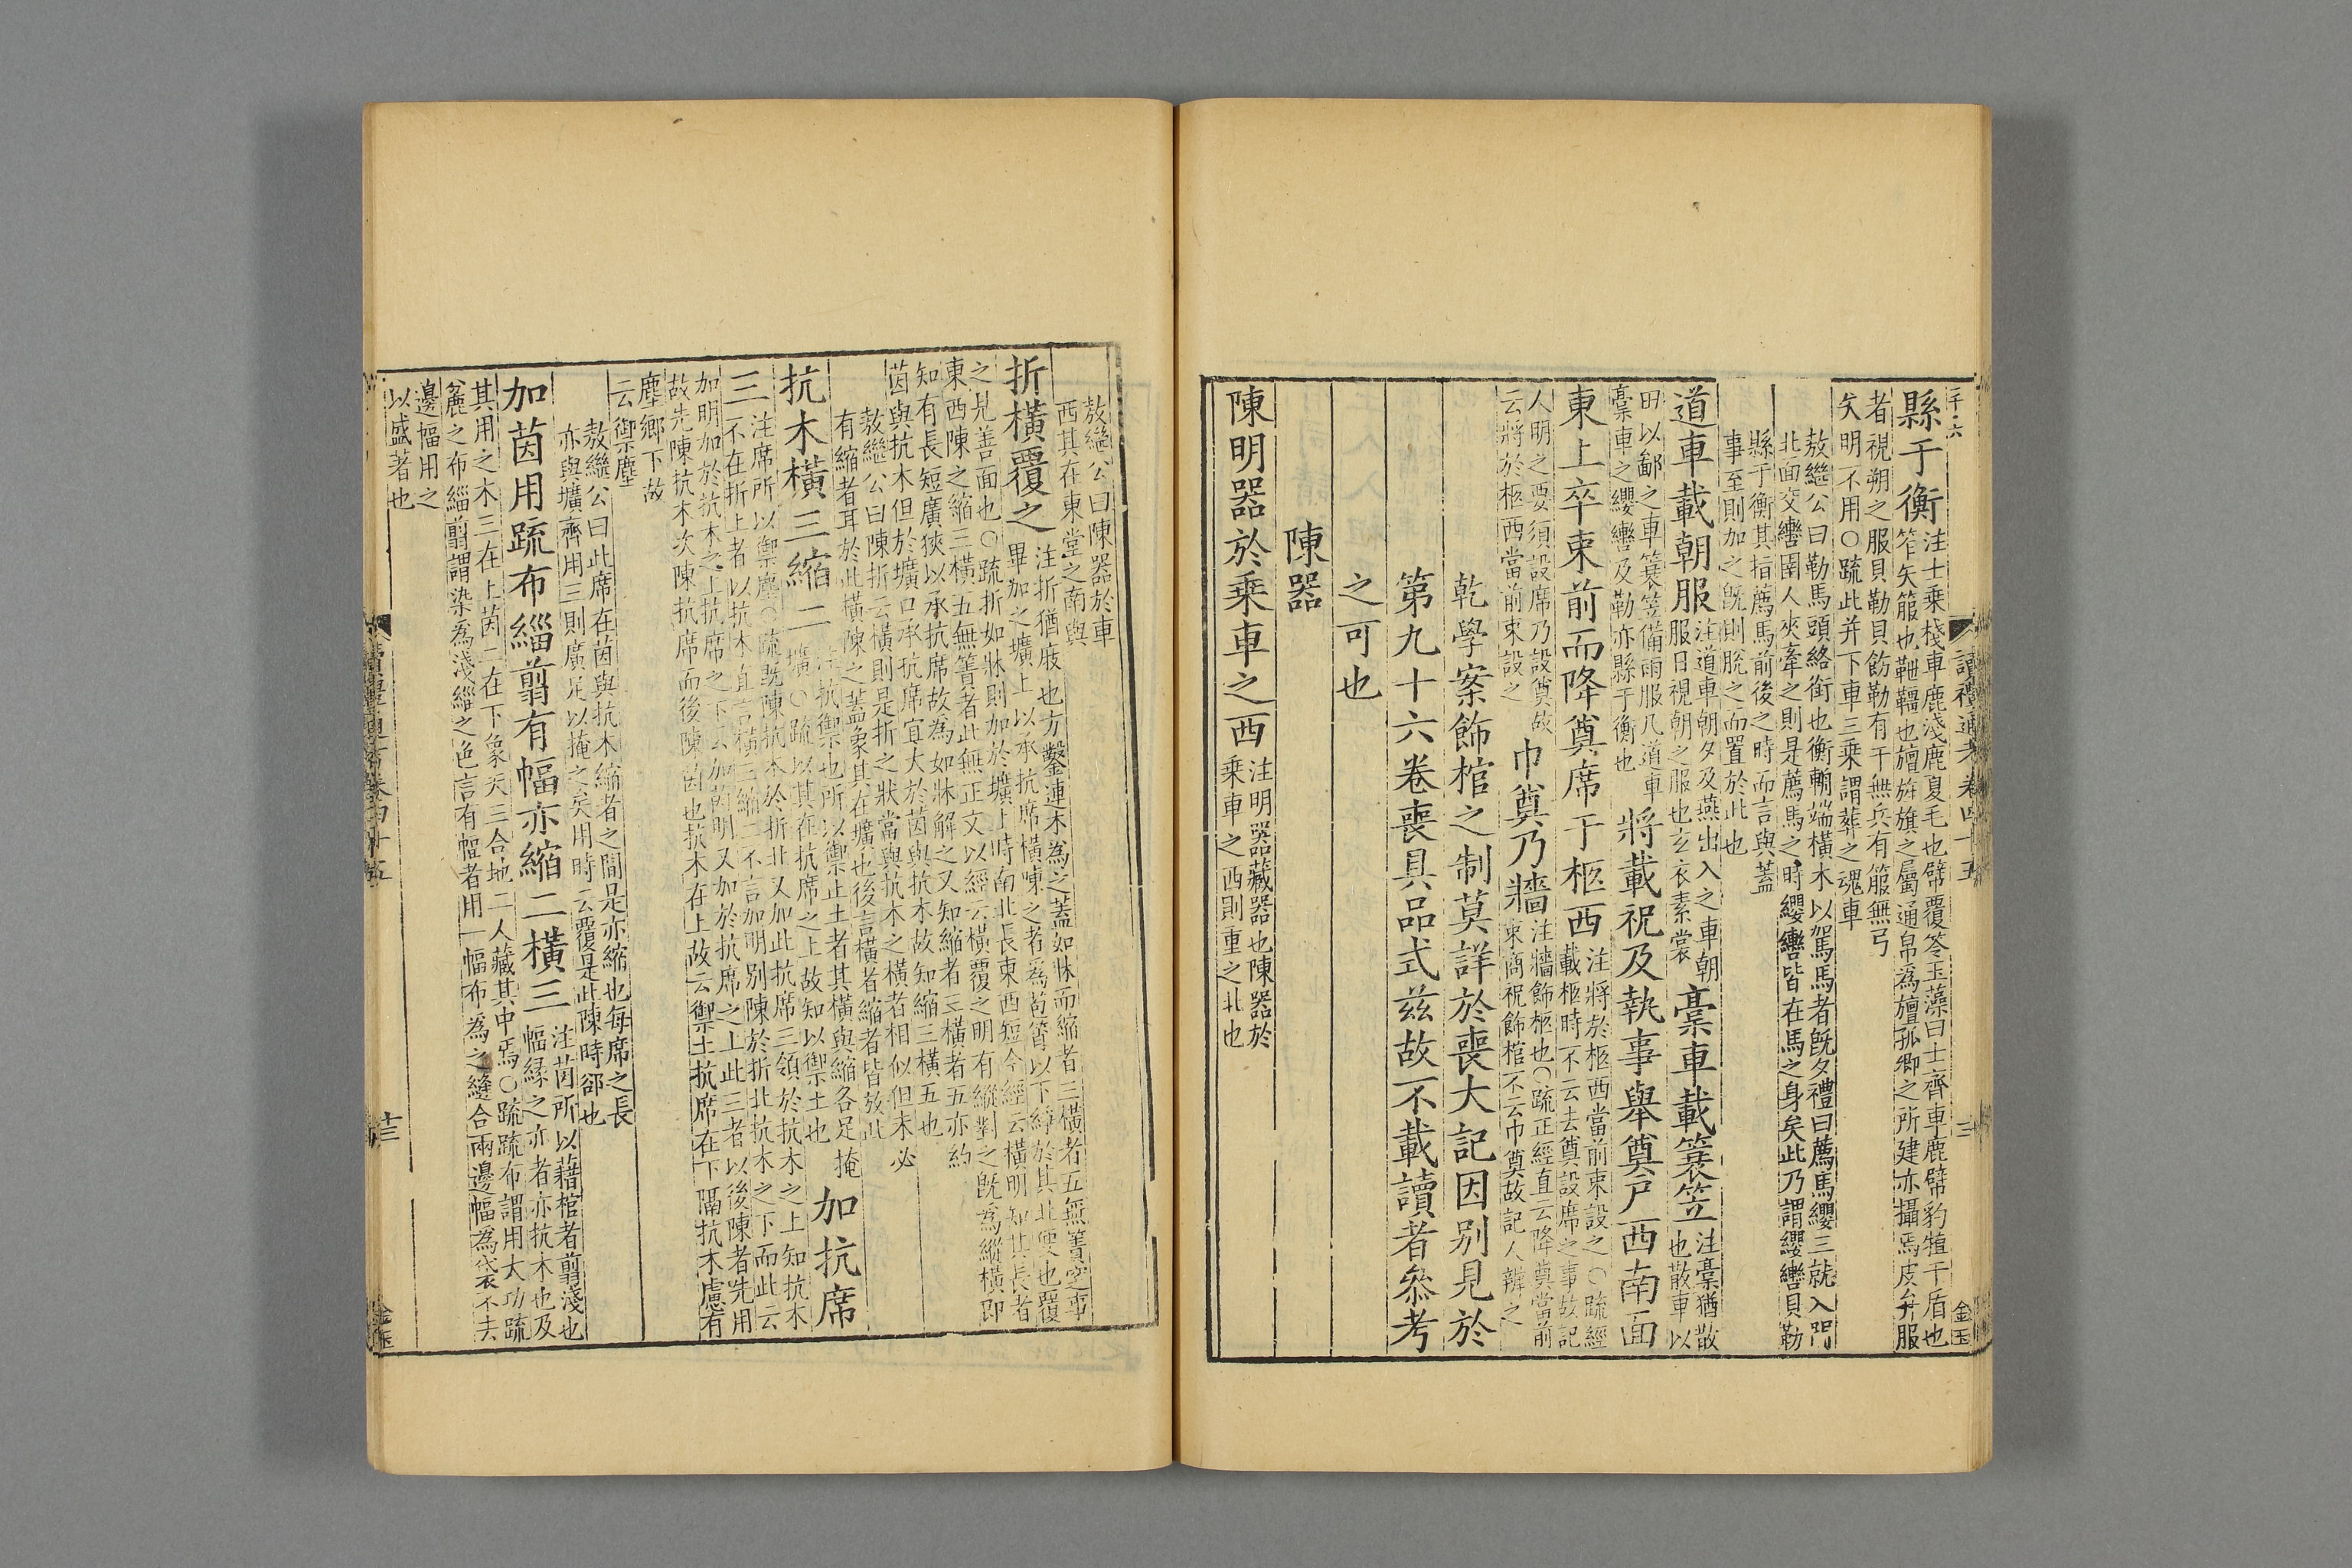 縣于衡注士乗棧車鹿淺鹿夏毛也幦覆笭玉藻曰士齊車鹿幦豹犆干盾也
笮矢箙也靾韁也旜旌旗之屬通帛爲旜孤卿之所建亦攝焉皮弁服
者視朔之服貝勒貝飾勒有干無兵有箙無弓
矢明不用○疏此并下車三乗謂葬之魂車
敖繼公曰勒馬頭絡銜也衡輈端横木以駕馬者旣夕禮曰薦馬纓三就入門
北面交轡圉人夾牽之則是薦馬之時纓轡皆在馬之身矣此乃謂纓轡貝勒
縣于衡其指薦馬前後之時而言與蓋
事至則加之旣則脫之而置於此也
道車載朝服注道車朝夕及燕出入之車朝
服日視朝之服也玄衣素裳
稾車載簑笠注稾猶散
也散車以
田以鄙之車簑笠備雨服凡道車
稾車之纓轡及勒亦縣于衡也
將載祝及執事舉奠戶西南面
東上卒束前而降奠席于柩西注將於柩西當前束設之○疏經
載柩時不云去奠設席之事故記
人明之要須設席乃設奠故
云將於柩西當前束設之
巾奠乃牆注牆飾柩也○疏正經直云降奠當前
束商祝飾棺不云巾奠故記人辨之
乾學案飾棺之制莫詳於喪大記因别見於
第九十六卷喪具品式茲故不載讀者叅考
之可也
陳器
陳明器於乗車之西注明器藏器也陳器於
乗車之西則重之北也
讀禮通考卷四十五
三
金玉
敖繼公曰陳器於車
西其在東堂之南與
折横覆之注折猶庪也方鑿連木為之蓋如牀而縮者三横者五無簀窆事
畢加之壙上以承抗席横陳之者爲苞筲以下綪於其北便也覆
之見善面也○疏折如牀則加於壙上時南北長東西短今經云横明知其長者
東西陳之縮三横五無簀者此無正文以經云横覆之明有縱對之旣為縱横即
知有長短廣狹以承抗席故為如牀解之又知縮者三横者五亦約
茵與抗木但於壙口承抗席宜大於茵與抗木故知縮三横五也
敖繼公曰陳折云横則是折之狀當與抗木之横者相似但未必
有縮者耳於此横陳之蓋象其在壙也後言横者縮者皆放此
抗木横三縮二注抗禦也所以禦止土者其横與縮各足掩
壙○疏以其在抗席之上故知以禦土也
加抗席
三注席所以禦塵○疏旣陳抗木於折北又加此抗席三領於抗木之上知抗木
不在折上者以抗木直言横三縮二不言加明别陳於折北抗木之下而此云
加明加於抗木之上抗席之下云加茵明又加於抗席之上此三者以後陳者先用
故先陳抗木次陳抗席而後陳茵也抗木在上故云禦土抗席在下隔抗木慮有
塵鄉下故
云禦塵
敖繼公曰此席在茵與抗木縮者之間是亦縮也每席之長
亦與壙齊用三則廣足以掩之矣用時云覆是此陳時郤也
加茵用疏布緇翦有幅亦縮二横三注茵所以藉棺者翦淺也
幅緣之亦者亦抗木也及
其用之木三在上茵二在下象天三合地二人藏其中焉○疏疏布謂用大功疏
麄之布緇翦謂染爲淺緇之色言有幅者用一幅布爲之縫合兩邊幅為袋不去
邊幅用之
以盛著也
讀禮通考卷四十五
十三
金玉